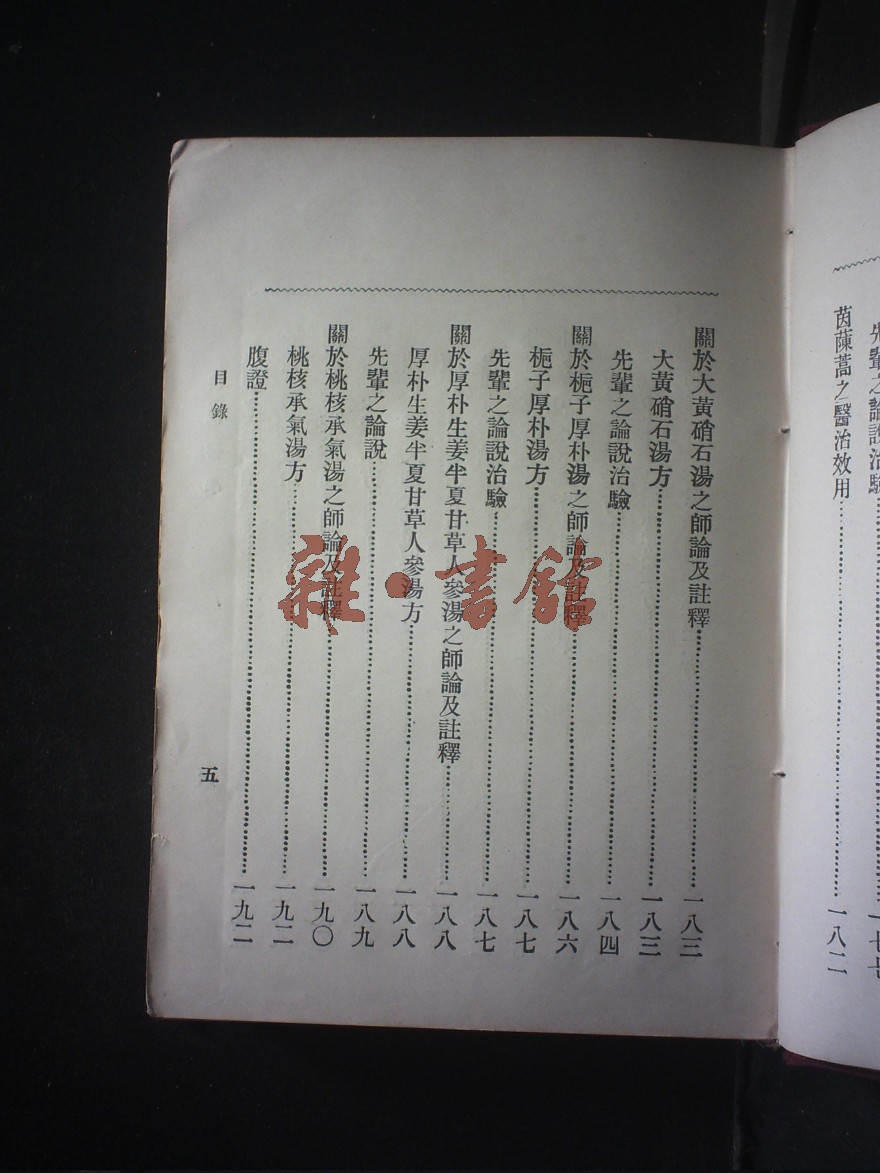 先輩之論說治驗……一七七
茵蔯蒿之醫治效用……一八二
關於大黃硝石湯之師論及註釋……一八三
大黃硝石湯方……一八三
先輩之論說治驗……一八四
關於梔子厚朴湯之師論及註釋……一八六
梔子厚朴湯方……一八七
先輩之論說治驗……一八七
關於厚朴生姜半夏甘草人參湯之師論及註釋……一八八
厚朴生姜半夏甘草人參湯方……一八八
先輩之論說……一八九
關於桃核承氣湯之師論及註釋……一九〇
桃核承氣湯方……一九二
腹證……一九二
目錄
五
雜·書館